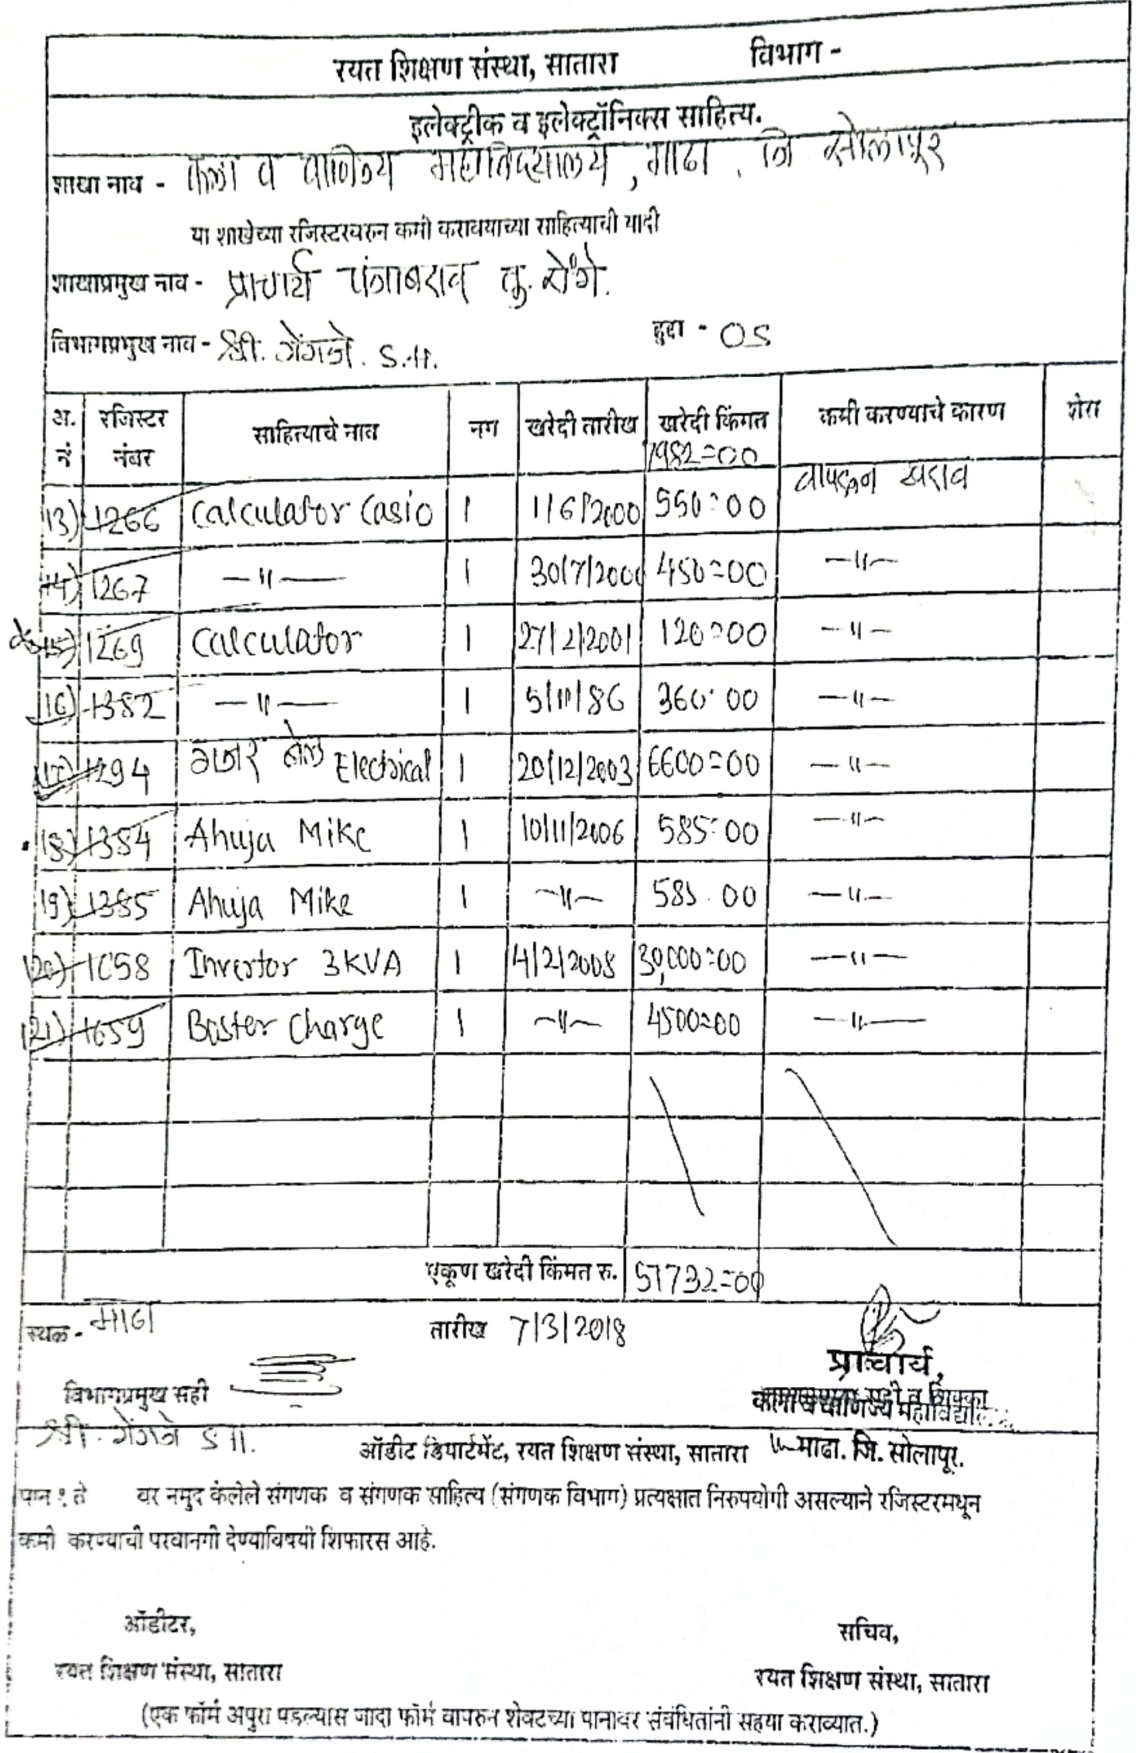 रयत शिक्षण संस्था, सातारा विभाग -
इलेक्ट्रीक व इलेक्ट्रॉनिक्स साहित्य.
शाखा नाव - कला व वाणिज्य महाविद्यालय, माढा. जि सोलापूर
या शाखेच्या रजिस्टरवरुन कमी करावयाच्या साहित्याची यादी
शाखाप्रमुख नाव - प्राचार्य पंजाबराव तु. रोंगे.
विभागप्रमुख नाव - श्री. हुद्दा - OS
अ. नं रजिस्टर नंबर साहित्याचे नाव नग खरेदी तारीख खरेदी किंमत कमी करण्याचे कारण शेरा
7982=00
13) 1266 Calculator Casio 1 1/6/2000 550=00 वापरून खराब
14) 1267 —॥— 1 30/7/2000 450=00 —॥—
15) 1269 Calculator 1 27/2/2001 120=00 —॥—
16) 1382 —॥— 1 5/11/86 360=00 —॥—
17) 1294 गजर बेल Electrical 1 20/12/2003 6600=00 —॥—
18) 1384 Ahuja Mike 1 10/11/2006 585=00 —॥—
19) 1385 Ahuja Mike 1 —॥— 585.00 —॥—
20) 1658 Invertor 3KVA 1 4/2/2008 30,000=00 —॥—
21) 1659 Boster Charge 1 —॥— 4500=00 —॥—
एकूण खरेदी किंमत रु. 51732=00
स्थळ - माढा तारीख 7/3/2018
प्राचार्य,
विभागप्रमुख सही
कला व वाणिज्य महाविद्यालय
श्री.
ऑडीट डिपार्टमेंट, रयत शिक्षण संस्था, सातारा माढा. जि. सोलापूर.
पान १ ते वर नमुद केलेले संगणक व संगणक साहित्य (संगणक विभाग) प्रत्यक्षात निरुपयोगी असल्याने रजिस्टरमधून
कमी करण्याची परवानगी देण्याविषयी शिफारस आहे.
ऑडीटर, सचिव,
रयत शिक्षण संस्था, सातारा रयत शिक्षण संस्था, सातारा
(एक फॉर्म अपुरा पडल्यास जादा फॉर्म वापरुन शेवटच्या पानावर संबंधितांनी सहया कराव्यात.)